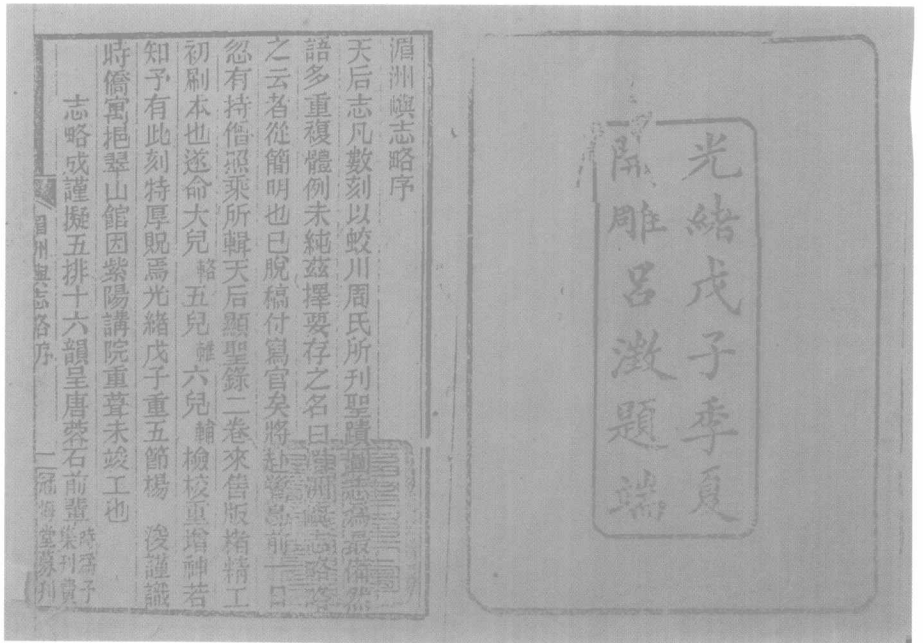 光緒戊子季夏
開雕呂澂題端
湄州嶼志略序
天后志凡數刻以蛟川周氏所刊聖蹟圖志爲最備然
語多重複體例未純茲擇要存之名曰湄洲嶼志略略
之云者從簡明也已脫稿付寫官矣將赴 前一日
忽有持僧照乘所輯天后顯聖錄二卷來售版楮精工
初刷本也遂命大兒輅五兒雗六兒輔檢校重增神若
知予有此刻特厚貺焉光緒戊子重五節楊 浚謹識
時僑寓挹翠山館因紫陽講院重葺未竣工也
志略成謹擬五排十六韻呈唐蓉石前輩時爲予集刊貲
湄州嶼志略序
一
冠悔堂募刊